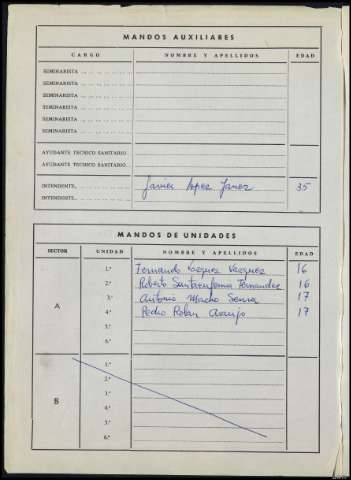 MANDOS AUXILIARES
CARGO NOMBRE Y APELLIDOS EDAD
SEMINARISTA
SEMINARISTA
SEMINARISTA
SEMINARISTA
SEMINARISTA
SEMINARISTA
AYUDANTE TECNICO SANITARIO
AYUDANTE TECNICO SANITARIO
INTENDENTE Javier Lopez Janez 35
INTENDENTE
MANDOS DE UNIDADES
SECTOR UNIDAD NOMBRE Y APELLIDOS EDAD
A
1.ª Fernando Vazquez Vazquez 16
2.ª Roberto Santaeufemia Fernandez 16
3.ª Antonio Macho Senra 17
4.ª Pedro Roldan Araujo 17
5.ª
6.ª
B
1.ª
2.ª
3.ª
4.ª
5.ª
6.ª